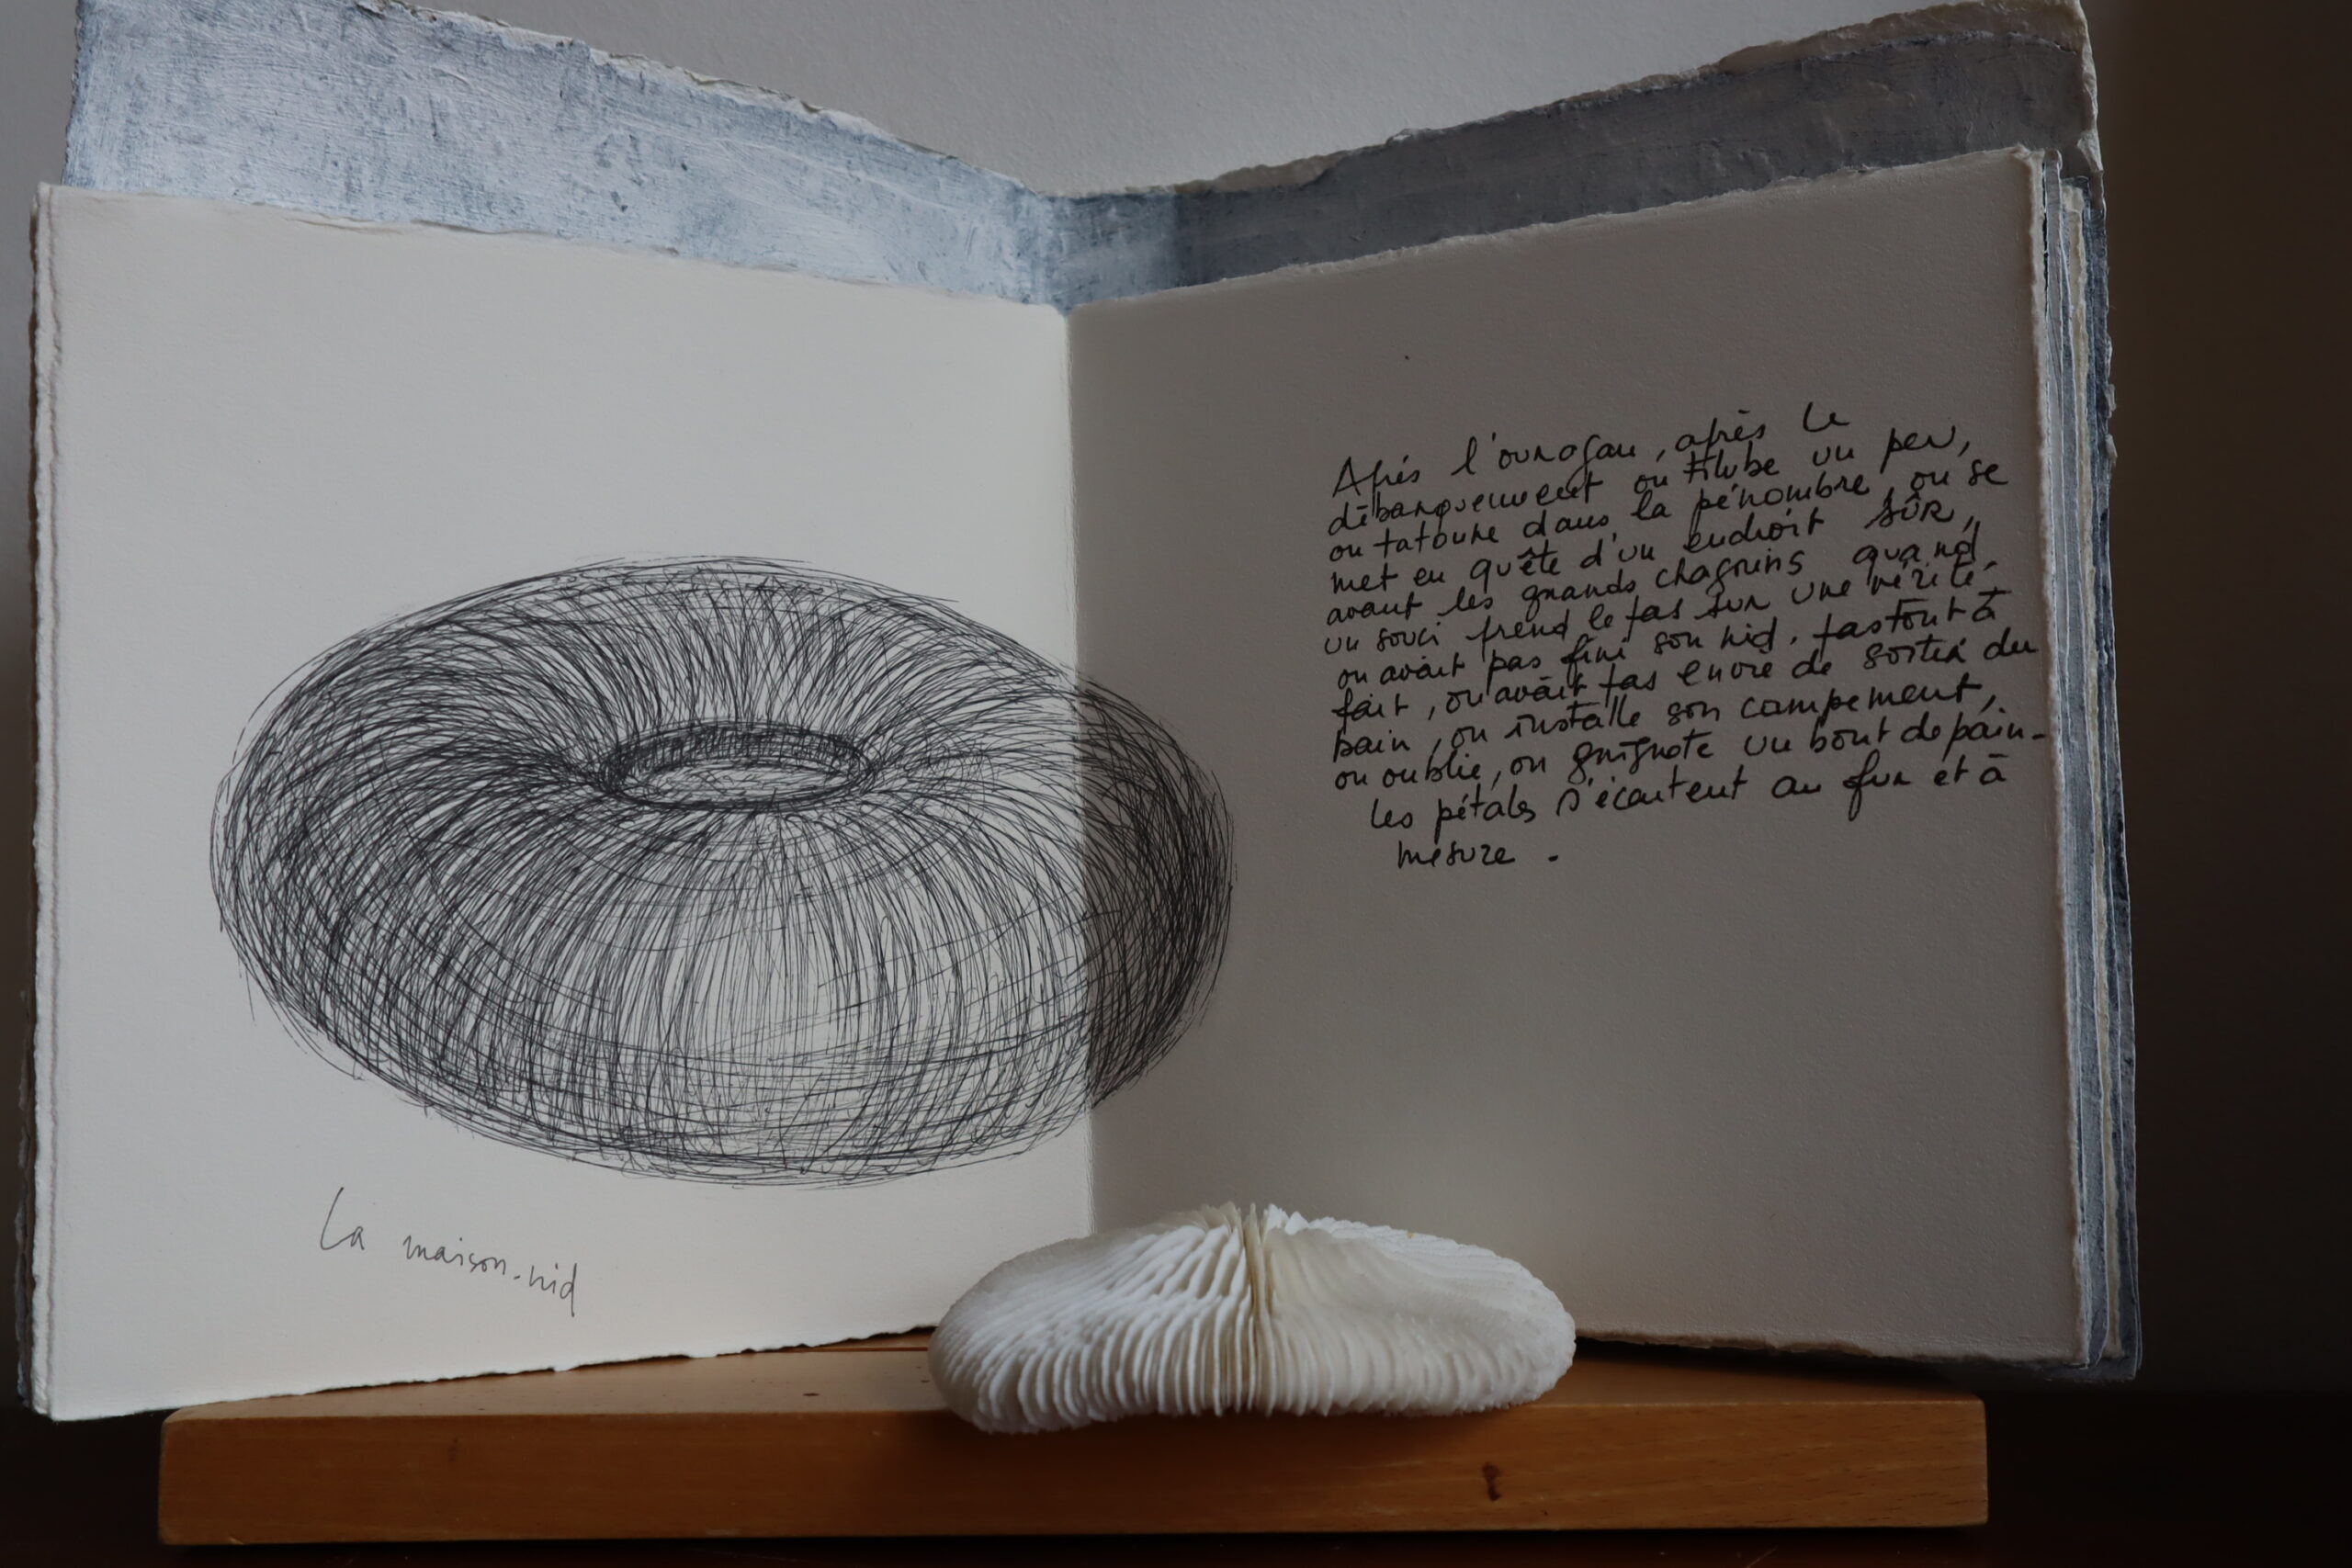 La maison-nid
Après l'ouragan, après le
débarquement on titube un peu,
on tatonne dans la pénombre, on se
met en quête d'un endroit sûr,
avant les grands chagrins quand
un souci prend le pas sur une vérité.
on avait pas fini son nid. pas tout à
fait, on avait pas envie de sortir du
bain, on installe son campement,
on oublie, on grignote un bout de pain.
les pétales s'écartent au fur et à
mesure.